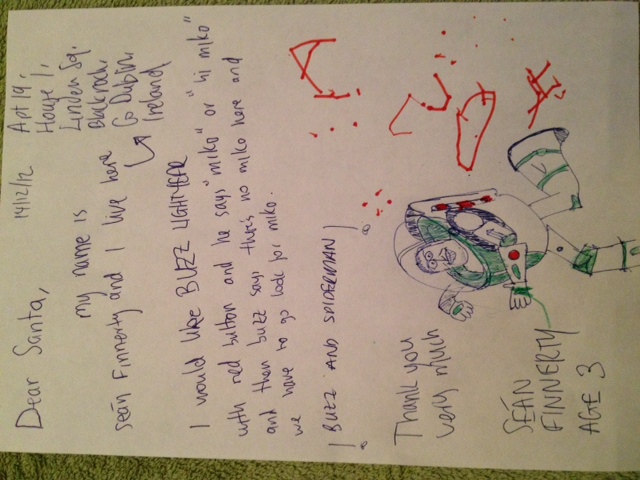 Dear Santa,
14/12/12
Apt 19,
House 1,
Linden Sq.
Blackrock,
Co Dublin,
Ireland
my name is
Seán Finnerty and I live here
I would like BUZZ LIGHTYEAR
with red button and he says "miko" or "hi miko"
and then buzz says there's no miko here and
we have to go look for miko.
! BUZZ AND SPIDERMAN !
Thank you
very much
SEÁN
FINNERTY
AGE 3